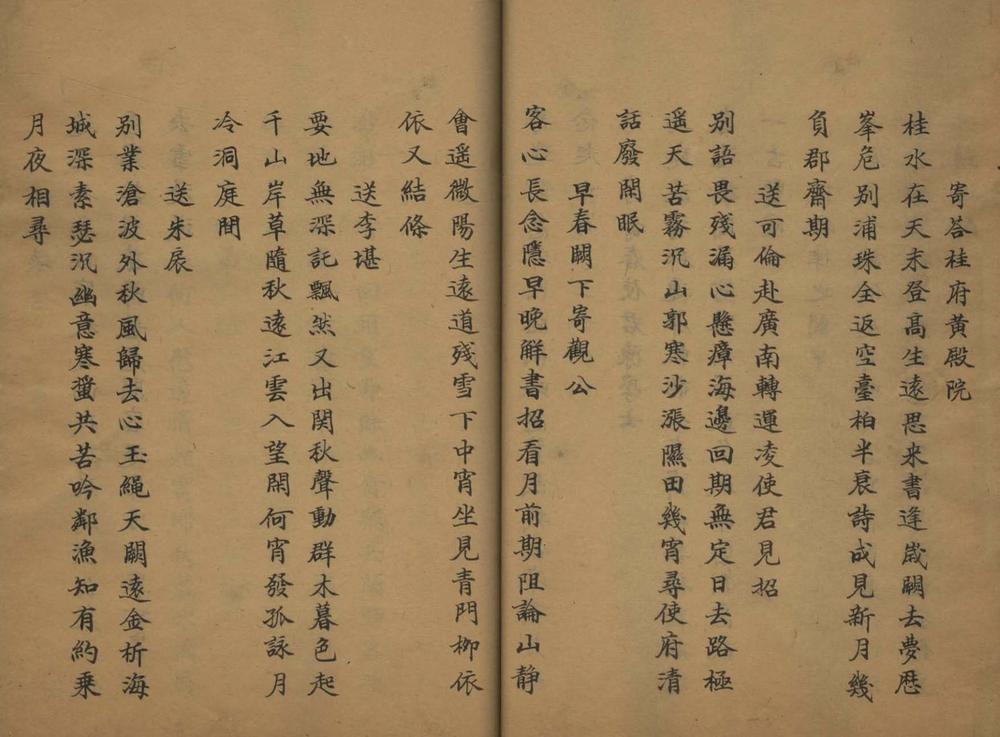 寄荅桂府黄殿院
桂水在天末登高生遠思来書逢歳闌去夢歴
峯危別浦珠全返空臺柏半衰詩成見新月幾
負郡齋期
送可倫赴廣南轉運凌使君見招
別語畏残漏心懸瘴海邊回期無定日去路極
遥天苦霧沉山郭寒沙漲隰田幾宵尋使府清
話廢閑眠
早春闕下寄觀公
客心長念隱早晚觧書招看月前期阻論山静
會遥微陽生遠道残雪下中宵坐見青門栁依
依又結條
送李堪
要地無深託飄然又出関秋聲動群木暮色起
千山岸草隨秋遠江雲入望閑何宵發孤詠月
冷洞庭間
送朱扆
別業滄波外秋風歸去心玉縄天闕遠金析海
城深素瑟沉幽意寒蛩共苦吟鄰漁知有約乗
月夜相尋